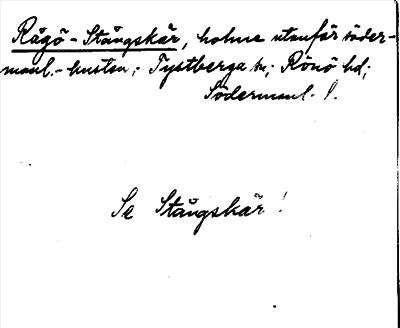 Rågö-Stångskär, holme utanför söder-
manl.-kusten; Tystberga sn; Rönö hd;
Södermanl. l.
Se Stångskär!